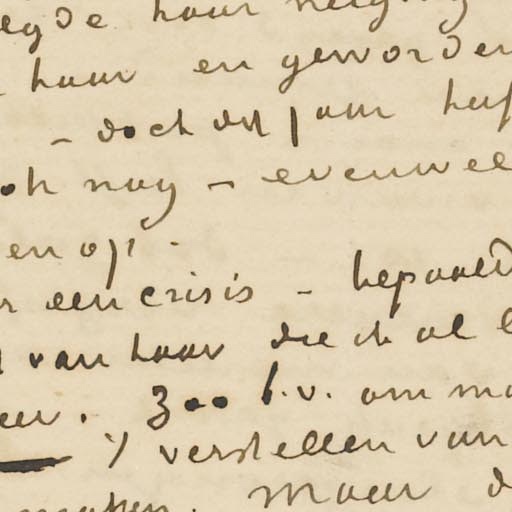 egde haar neig
haar en geworden
– doch dit jaar heef
och nog – evenwel
en op.
r een crisis – bepaald
van haar die ik al
eer. Zoo b.v. om ma
't verstellen van
maken. Maar d